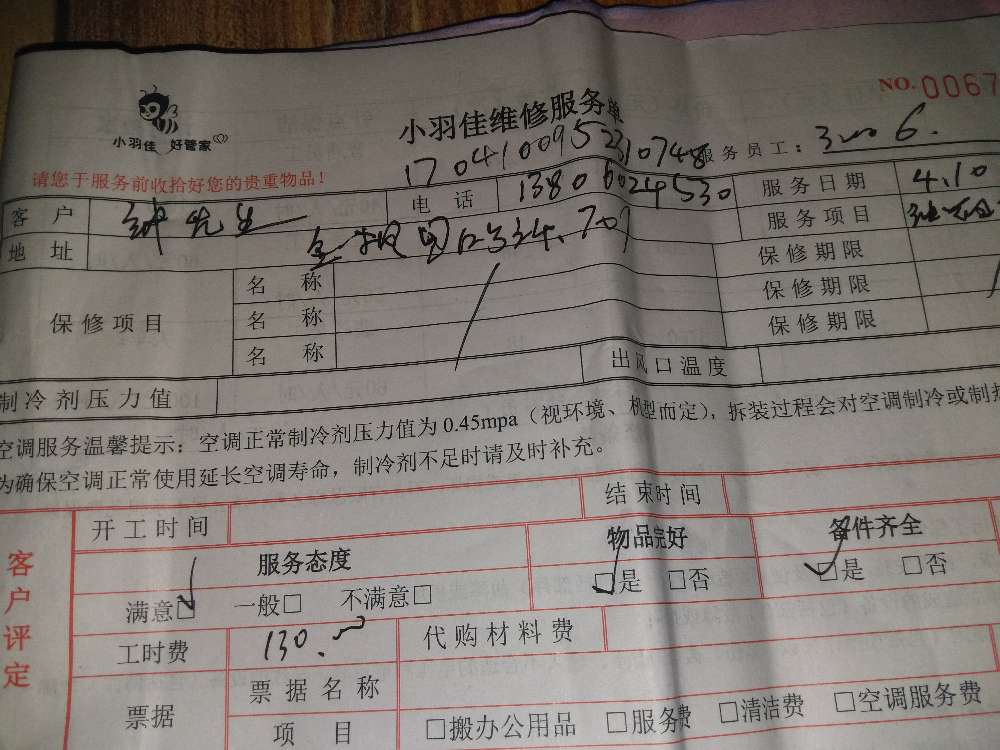 NO.0067
小羽佳 好管家
小羽佳维修服务单
17041009522310748
服务员工：3006.
请您于服务前收拾好您的贵重物品！
客户 钟先生 电话 13806024530 服务日期 4.10
地址 334.707 服务项目
保修项目 名称 保修期限
名称 保修期限
名称 保修期限
制冷剂压力值 出风口温度
空调服务温馨提示：空调正常制冷剂压力值为0.45mpa（视环境、机型而定），拆装过程会对空调制冷或制热
为确保空调正常使用延长空调寿命，制冷剂不足时请及时补充。
客户评定
开工时间 结束时间
服务态度 物品完好 备件齐全
满意☑ 一般□ 不满意□ ☑是 □否 ☑是 □否
工时费 130.00 代购材料费
票据 票据名称
项目 □搬办公用品 □服务费 □清洁费 □空调服务费